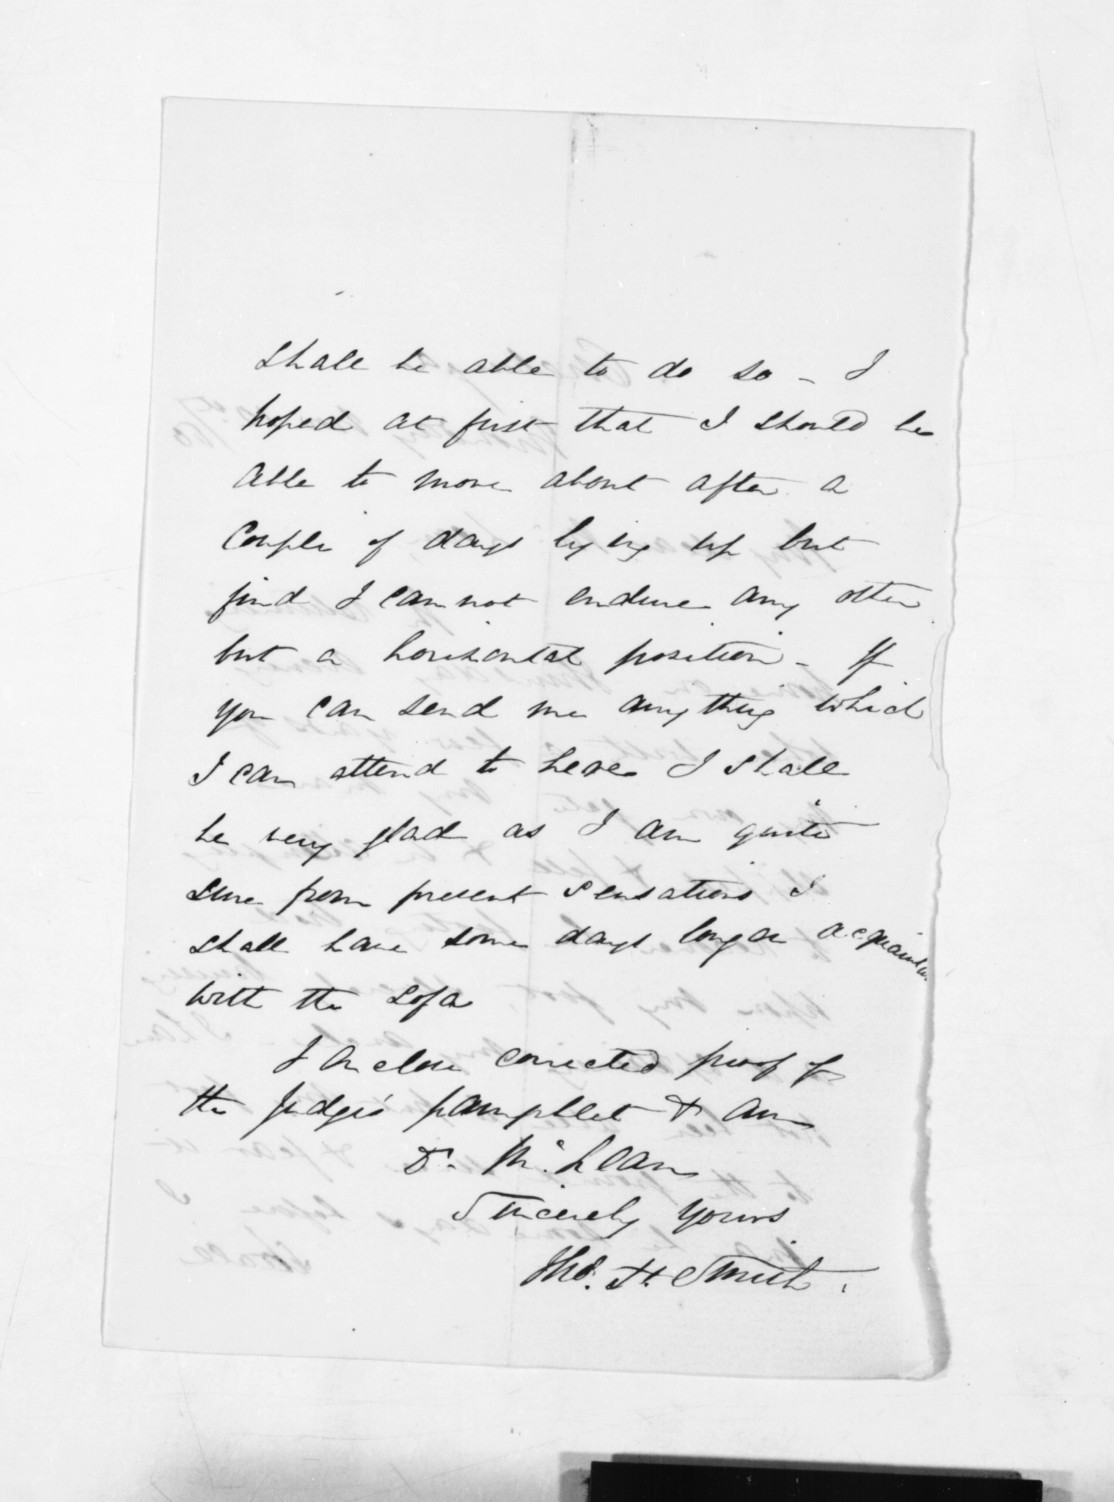 shall be able to do so - I
hoped at first that I should be
able to move about after a
couple of days lying up but
find I cannot endure any other
but a horizontal position - If
you can send me anything which
I can attend to here I shall
be very glad as I am quite
sure from present sensations I
shall have some days longer acquaintance
with the sofa
I enclose corrected proof of
the Judge's pamphlet & am
Dr. McLean
Sincerely Yours
Thos. H. Smith.